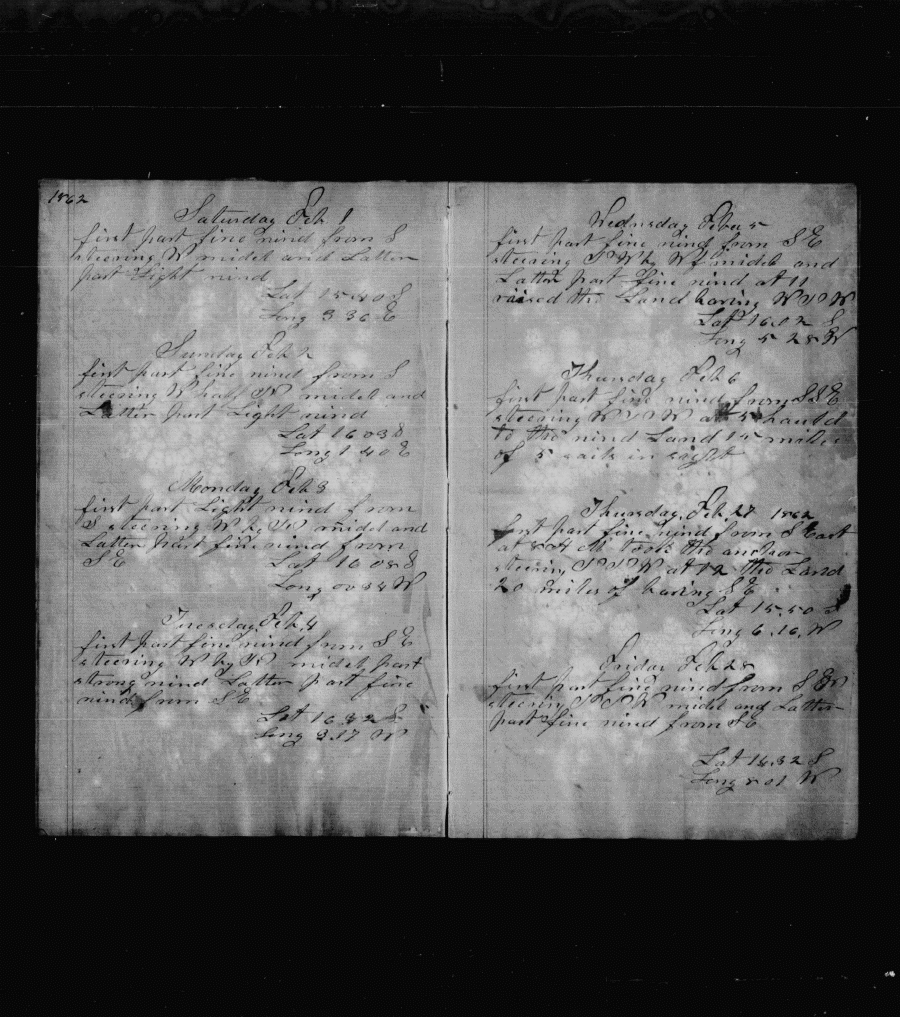 1862
Saturday Feb 1
first part fine wind from S
steering W midel and Latter
part Light wind
Lat 15.40 S
Long 3 36 E
Sunday Feb 2
first part fine wind from S
steering W half N midel and
Latter part Light wind
Lat 16 03 S
Long 1 40 E
Monday Feb 3
first part Light wind from
S steering W by N midel and
Latter part fine wind from
S E Lat 16 08 S
Long 00 34 W
Tuesday Feb 4
first part fine wind from S E
steering W by N midel part
strong wind Latter part fine
wind from S E
Lat 16.32 S
Long 3.17 W
Wednsday Febu 5
first part fine wind from S E
steering by W midel and
Latter part fine wind at 11
raised the Land baring W
Lat 16.02 S
Long 5 28 W
Thursday Feb 6
first part fine wind from S S E
steering W at 5 hauld
to the wind Land 15 miles
of 5 sails in sight
Thursday, Feb, 27 1862
first part fine wind from S East
at took the anchor
steering at 12 the Land
20 miles of baring S E
Lat 15.50 S
Long 6.16, W
Friday Feb 28
first part fine wind from S E
steering midel and Latter
part fine wind from S E
Lat 14.32 S
Long 8 01 W